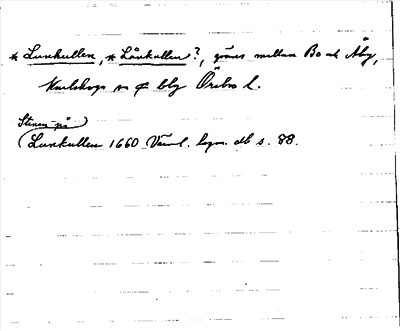 * Lunkullen, * Lånkullen?, gräns mellan Bo och Åby,
Karlskoga sn o blg Örebro l.
Stenen på
(Lunkullen 1660 Värml. lagm. db s. 88.